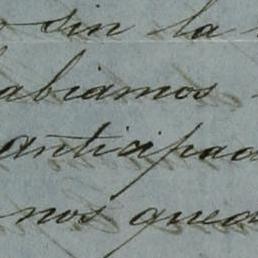 sin la
abiamos
anticipad
nos qued